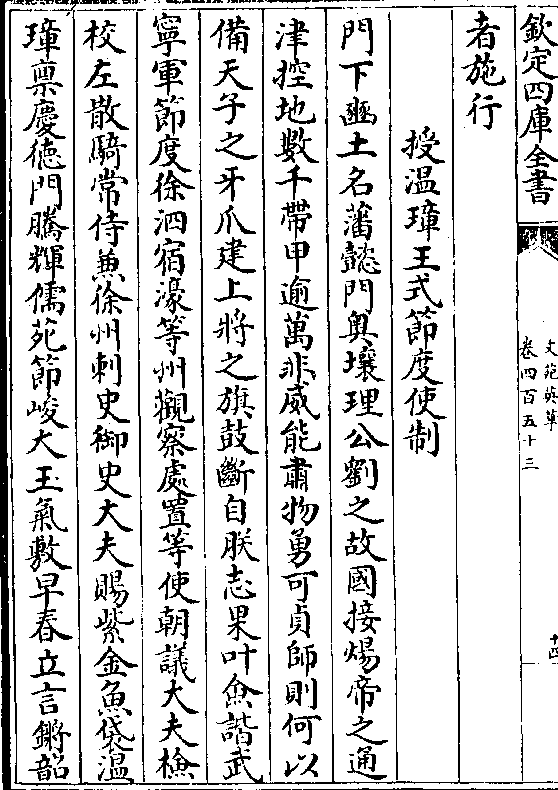 欽定四庫全書
文苑英華
卷四百五十三
十四
者施行
授温璋王式節度使制
門下豳土名藩懿門奥壤理公劉之故國接煬帝之通
津控地數千帶甲逾萬非威能肅物勇可貞師則何以
備天子之牙爪建上將之旗鼓斷自朕志果叶僉諧武
寧軍節度徐泗宿濠等州觀察處置等使朝議大夫檢
校左散騎常侍兼徐州刺史御史大夫賜紫金魚袋温
璋禀慶德門騰輝儒苑節峻大玉氣敷早春立言鏘韶